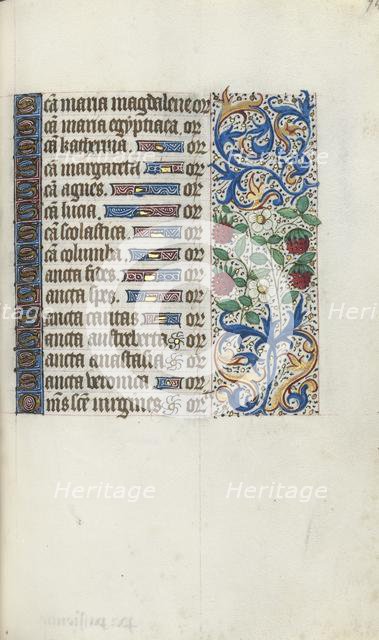 Sca maria magdalene or
Sca maria egyptiaca. or
Sca katherina. or
Sca margareta or
Sca agnes. or
Sca lucia. or
Sca scolastica. or
Sca columba. or
Sancta fides. or
Sancta spes. or
Sancta caritas or
Sancta austreberta or
Sancta anastasia or
Sancta veronica. or
Oms sce virgines. or
Heritage
Heritage
Heritage
Heritage